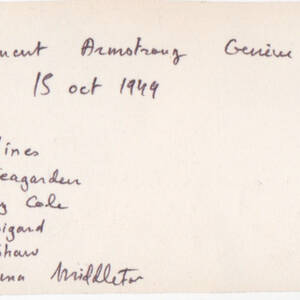 ment Armstrong Genève
15 oct 1949
ines
eagarden
y Cole
igard
Shaw
ma Middleton